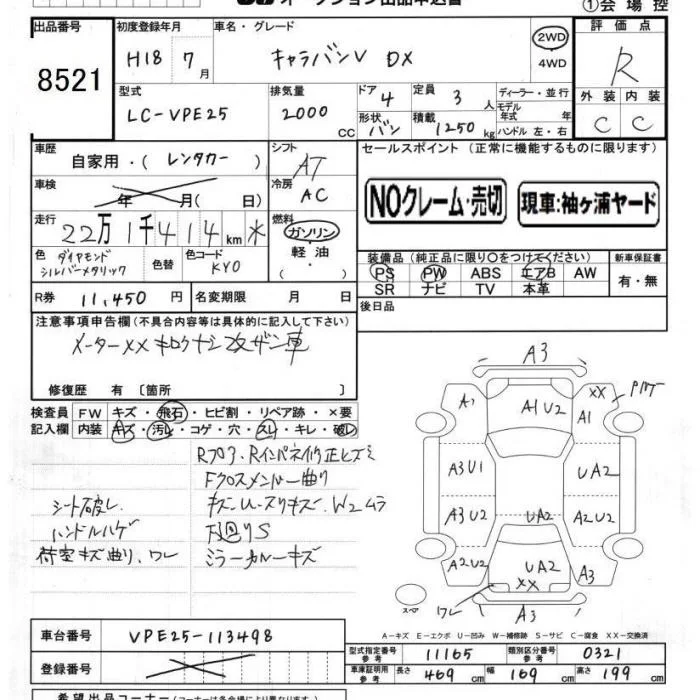 オークション出品申込書
①会場控
出品番号
8521
初度登録年月
H18 7月
車名・グレード
キャラバンV DX
2WD
4WD
評価点
R
外装 内装
C C
型式
LC-VPE25
排気量
2000 CC
ドア 4
形状 バン
定員 3 人
積載 1250 kg
ディーラー・並行
モデル
年式 年
ハンドル 左・右
車歴
自家用・(レンタカー)
シフト AT
車検 年 月( 日)
冷房 AC
走行
22万1千414km *
燃料
ガソリン
軽油
色 ダイヤモンドシルバーメタリック
色替
色コード KY0
R券 11,450 円
名変期限 月 日
セールスポイント (正常に機能するものに限ります)
NOクレーム・売切
現車:袖ヶ浦ヤード
装備品(純正品に限り○をつけてください)
PS PW ABS エアB AW
SR ナビ TV 本革
新車保証書
有・無
後日品
注意事項申告欄(不具合内容等は具体的に記入して下さい)
メーターXX キロクナシ 改ザン車
修復歴 有〔箇所 〕
検査員記入欄
FW キズ・飛石・ヒビ割・リペア跡・×要
内装 キズ・汚レ・コゲ・穴・スレ・キレ・破レ
シート破レ
ハンドルハゲ
荷室キズ曲り、ワレ
Rフロア、Rインパネ修正ヒズミ
Fクロスメンバー曲り
キズ・U・スリキズ、W2ムラ
下廻りS
ミラーカバーキズ
A3
A1
A1U2
XX
A1
A3U1
UA2
A3U2
UA2
A2U2
A2U2
UA2
XX
A3
ワレ
A3
スペア
A—キズ E—エクボ U—凹み W—補修跡 S—サビ C—腐食 XX—交換済
車台番号
VPE25-113498
登録番号
型式指定番号 参考 11165
類別区分番号 参考 0321
車庫証明用 参考 長さ 469cm 幅 169cm 高さ 199cm
希望出品コーナー